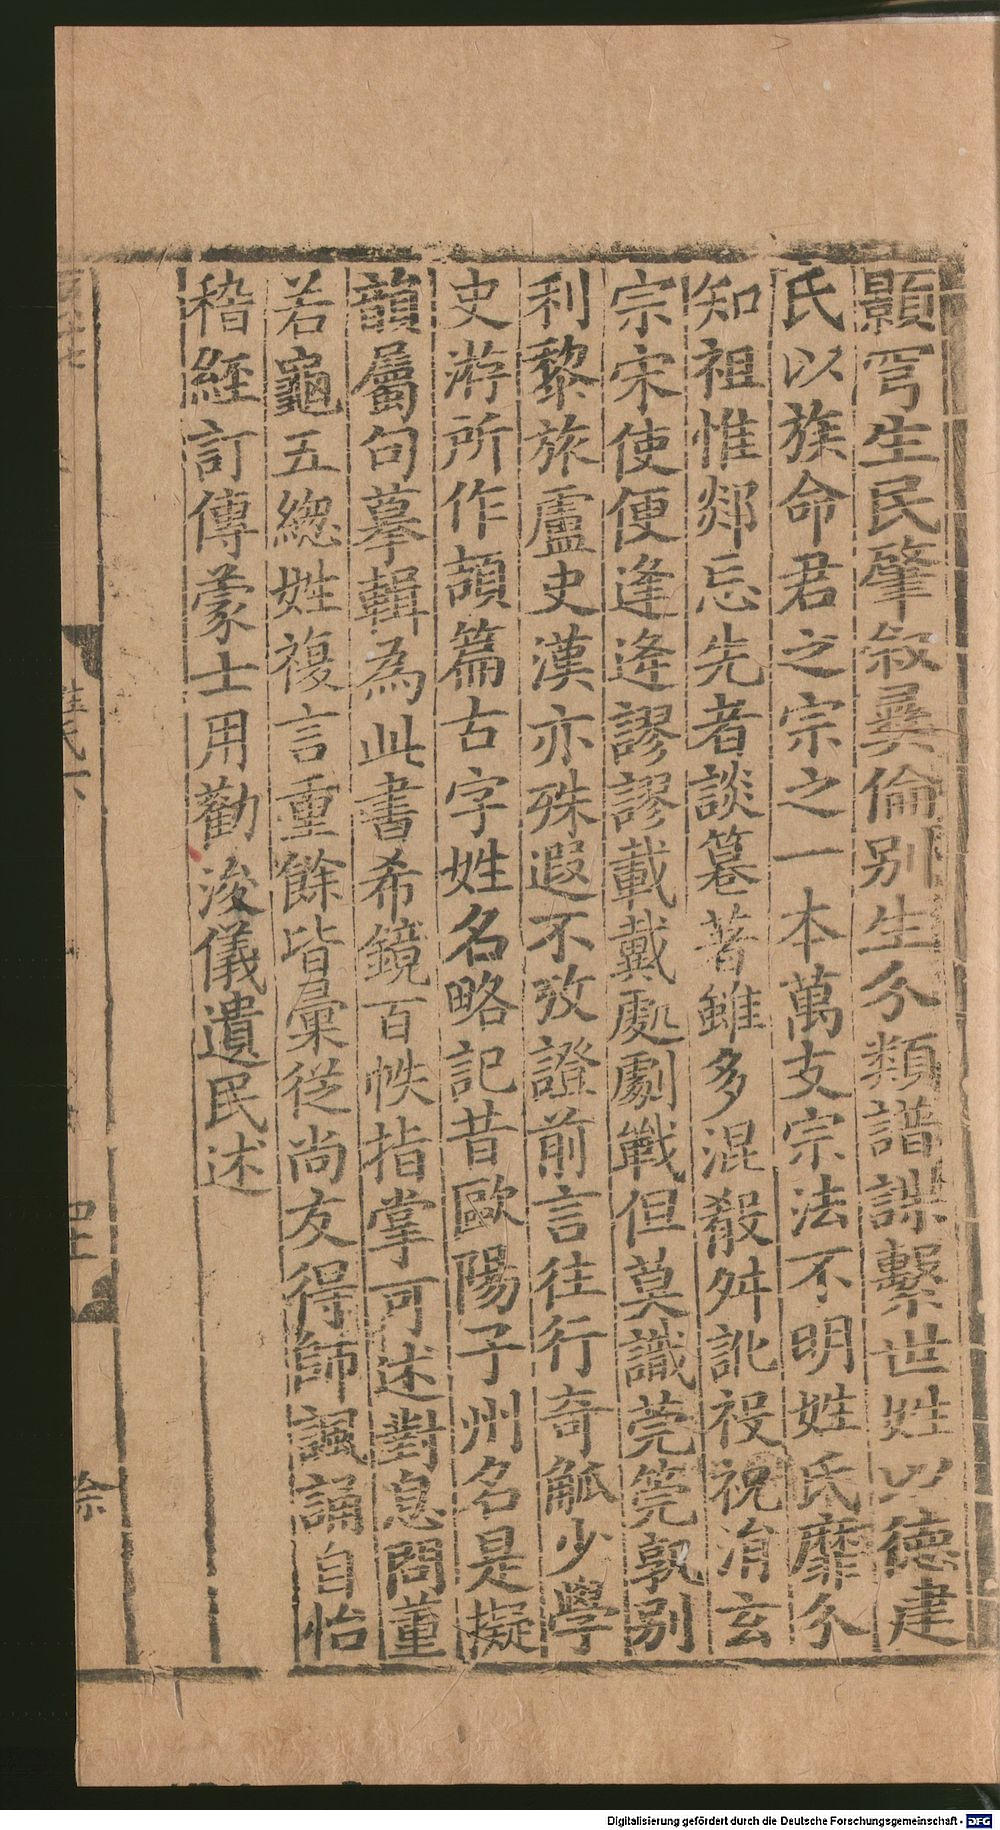 顥穹生民肈叙彞倫别生分類譜諜繫世姓以德建
氏以族命君之宗之一本萬支宗法不明姓氏靡分
知祖惟郯忘先者談簒著雖多混殽舛訛祋祝洧玄
宗宋使便逢逄謬謬載戴處劇戰但莫識莞筦孰别
利黎旅盧史漢亦殊遐不攷證前言往行奇觚少學
史游所作頡篇古字姓名略記昔歐陽子州名是擬
韻屬句摹輯為此書希鏡百帙指掌可述對息問董
若龜五緫姓複言重餘皆彙從尚友得師諷誦自怡
稽經訂傳蒙士用勸浚儀遺民述
姓氏下
徐
Digitalisierung gefördert durch die Deutsche Forschungsgemeinschaft - DFG